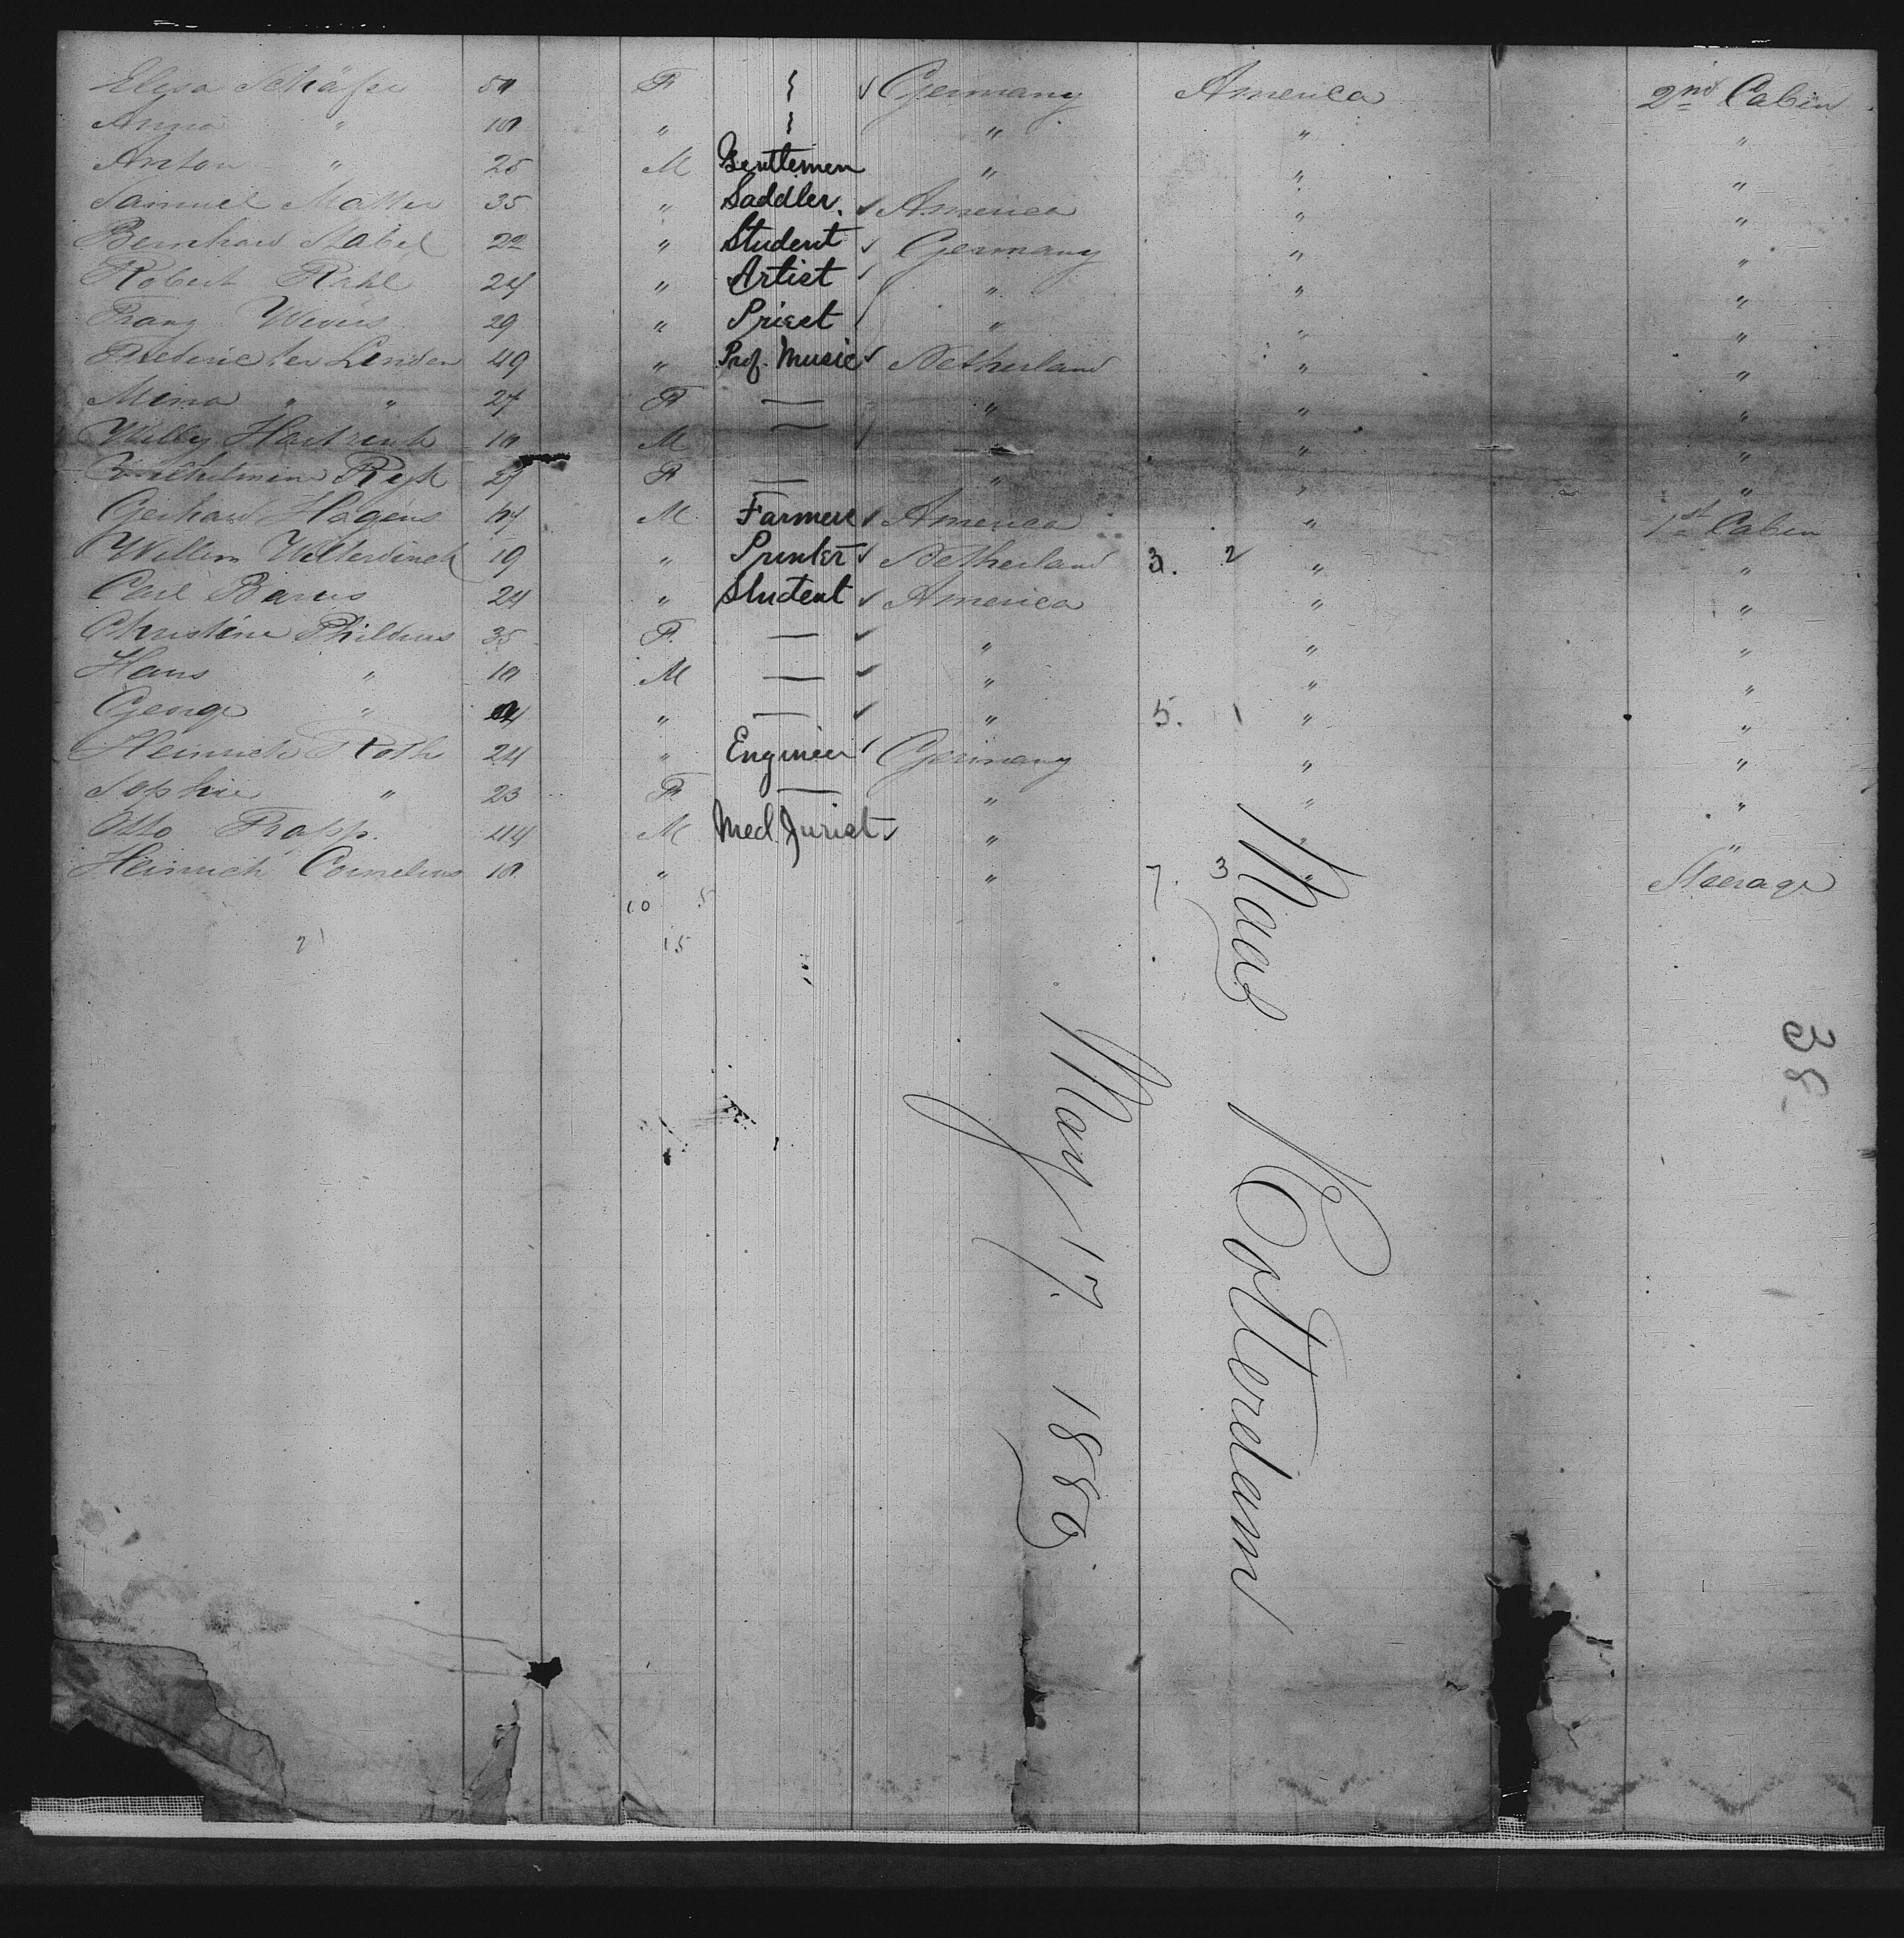 Elysa Schäfer 50 F } ✓ Germany America 2nd Cabin
Anna " 10 " } " " "
Anton " 25 M Gentlemen " " "
Samuel Matter 35 " Saddler. ✓ America " "
Bernhard Stabel 22 " Student ✓ Germany " "
Robert Rahl 24 " Artist ✓ " " "
Franz Wevers 29 " Priest " " "
Frederic ter Linden 49 " Prof. Music ✓ Netherland " "
Mina " " 27 F — " " "
Willy 10 M — " " "
Wilhelmin 27 F — " " "
Gerhard Hagens 64 M Farmer ✓ America " 1st Cabin
Willem Willerdinck 19 " Printer ✓ Netherland 3. 2 " "
Carl Barus 24 " Student ✓ America " "
Christine Phildius 35 F. — ✓ " " "
Hans " 10 M — ✓ " " "
George " " — ✓ " 5. 1 " "
Heinrich Roth 24 " Engineer ✓ Germany " "
Sophie " 23 F. — " " "
Otto Frapp. 44 M Med. Jurist ✓ " " "
Heinrich Cornelius 10 " " 7. 3 " Steerage
10 5
21 15
Maas Rotterdam
May 17. 1880.
38